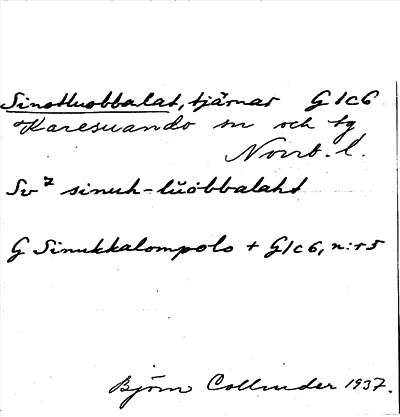 Sinotluobbalat, tjärnar G1c6
Karesuando sn och tg
Norrb. l.
Sv⁷ sinuh-lŭöbbalaht
G Sinukkalompolo + G1c6, n:r 5
Björn Collinder 1937.